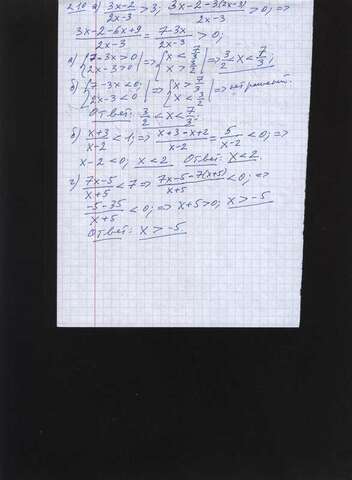 2.10 а) (3x-2)/(2x-3) > 3; (3x-2-3(2x-3))/(2x-3) > 0; =>
(3x-2-6x+9)/(2x-3) = (7-3x)/(2x-3) > 0;
а) {7-3x>0 2x-3>0 | => {x < 7/3 x > 3/2 | => 3/2 < x < 7/3;
б) {7-3x<0 2x-3<0 | => {x > 7/3 x < 3/2 | => нет решений.
Ответ: 3/2 < x < 7/3;
б) (x+3)/(x-2) < 1; => (x+3-x+2)/(x-2) = 5/(x-2) < 0; =>
x-2<0; x<2 Ответ: x<2.
г) (7x-5)/(x+5) < 7 => (7x-5-7(x+5))/(x+5) < 0; =>
(-5-35)/(x+5) < 0; => x+5>0; x>-5
Ответ: x>-5